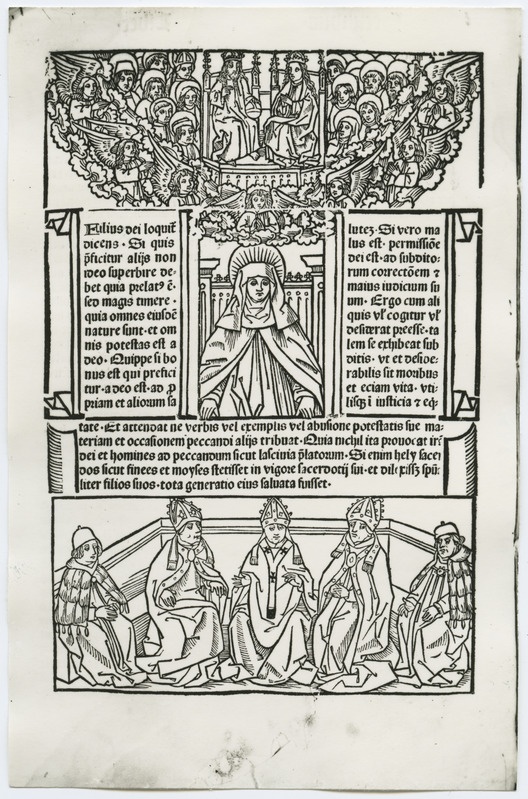 Filius dei loquit̃
dicens · Si quis
p̃ficitur alijs non
ideo superbire de-
bet quia prelat⁹ ē·
sed magis timere ·
quia omnes eiusdē
nature sunt · et om
nis potestas est a
deo · Quippe si bo
nus est qui prefici
tur · a deo est · ad ꝓ
priam et aliorum sa
lutez · Si vero ma
lus est · permissiōe
dei est · ad subdito-
rum correctōem ⁊
maius iudicium su
um · Ergo cum ali
quis vł cogitur vł
desiderat preesse · ta
lem se exhibeat sub
ditis · vt et deside-
rabilis sit moribus
et eciam vita · vti-
lisqꝫ ī iusticia ⁊ eq̄·
tate · Et attendat ne verbis vel exemplis vel abusione potestatis sue ma-
teriam et occasionem peccandi alijs tribuat · Quia nichil ita prouocat irā
dei et homines ad peccandum sicut lasciuia p̃latorum · Si enim hely sacer
dos sicut finees et moyses stetisset in vigore sacerdotij sui · et dilexissꝫ spū
liter filios suos · tota generatio eius saluata fuisset ·